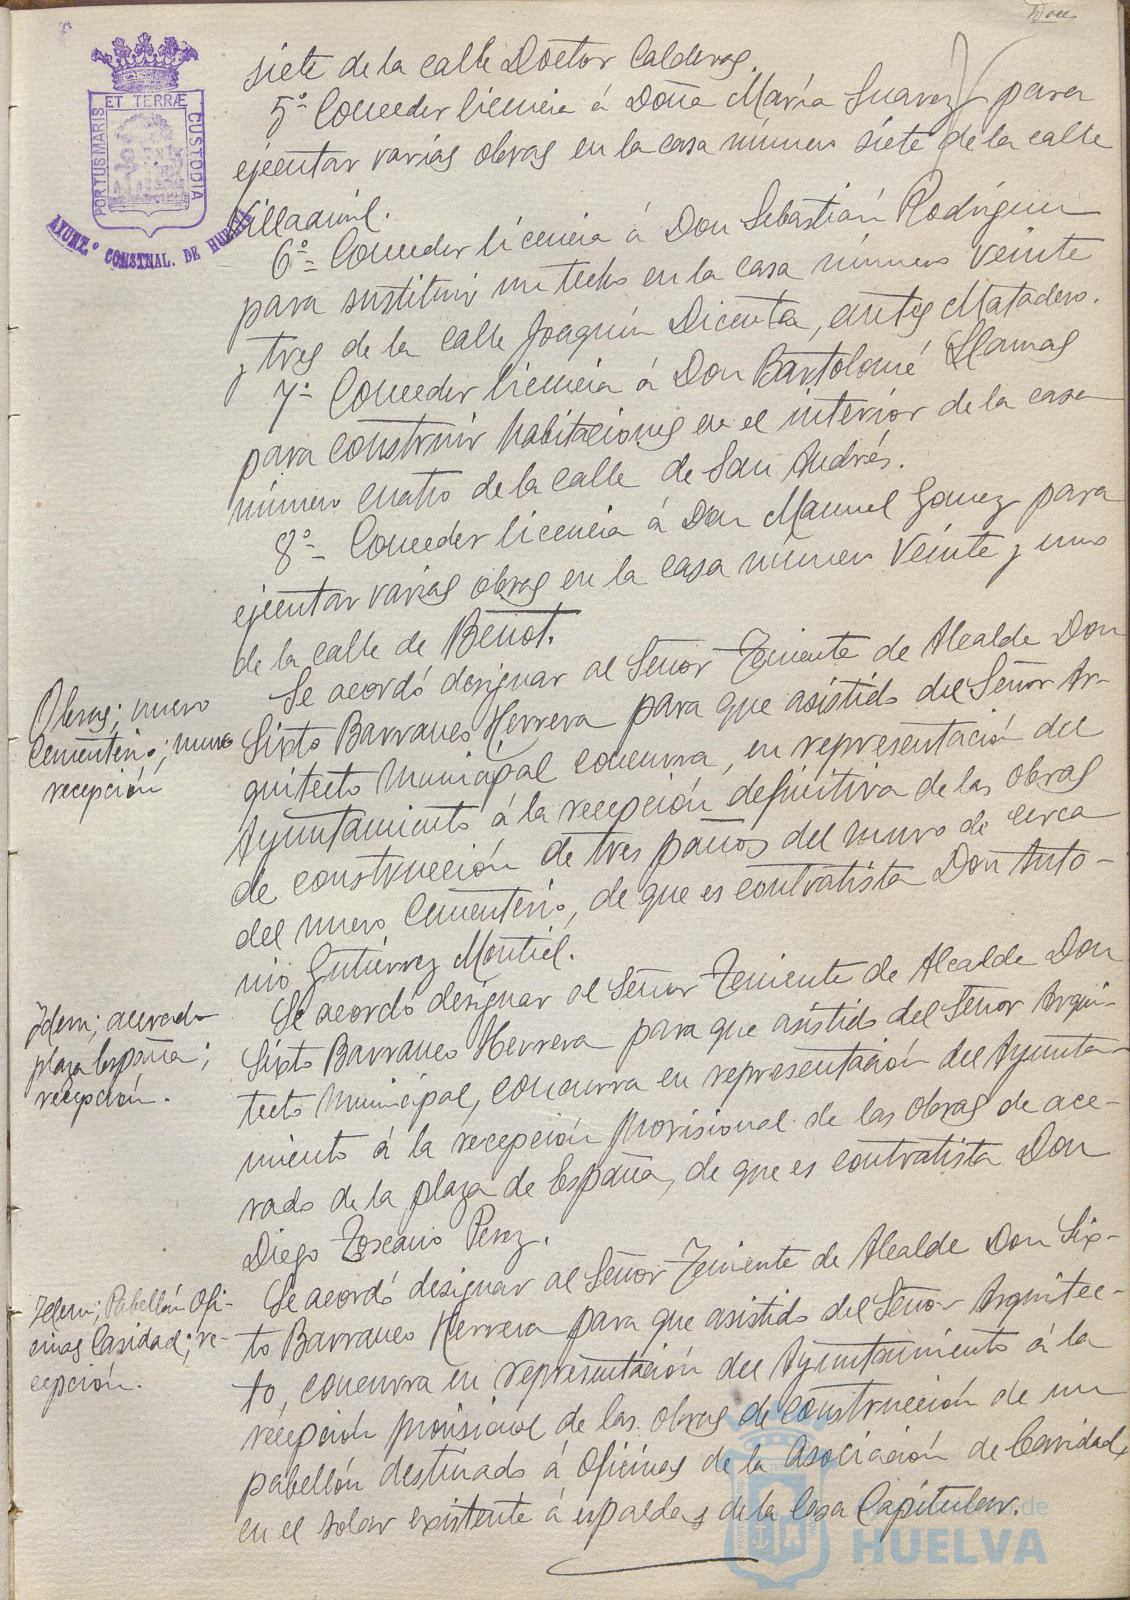 Doce
PORTUS MARIS ET TERRÆ CUSTODIA
AYUNT.º CONSTNAL. DE HUELVA
siete de la calle Doctor Calderas.
5º- Conceder licencia á Doña María Suarez para
ejecutar varias obras en la casa número siete de la calle
Villaamil.
6º- Conceder licencia á Don Sebastián Rodríguez
para sustituir un techo en la casa número veinte
y tres de la calle Joaquín Dicenta, antes Matadero.
7º- Conceder licencia á Don Bartolomé Llamas
para construir habitaciones en el interior de la casa
número cuatro de la calle de San Andrés.
8º- Conceder licencia á Don Manuel Gomez para
ejecutar varias obras en la casa número veinte y uno
de la calle de Benot.
Obras; nuevo
Cementerio; muro
recepción
Se acordó designar al Señor Teniente de Alcalde Don
Sixto Barranco Herrera para que asistido del Señor Ar-
quitecto Municipal concurra, en representación del
Ayuntamiento á la recepción definitiva de las obras
de construcción de tres paños del muro de cerca
del nuevo Cementerio, de que es contratista Don Anto-
nio Gutiérrez Montiel.
Idem; acerado
plaza España;
recepción.
Se acordó designar al Señor Teniente de Alcalde Don
Sixto Barranco Herrera para que asistido del Señor Arqui-
tecto Municipal, concurra en representación del Ayunta-
miento á la recepción provisional de las obras de ace-
rado de la plaza de España, de que es contratista Don
Diego Toscano Perez.
Idem; Pabellón Ofi-
cinas Caridad; re-
cepción.
Se acordó designar al Señor Teniente de Alcalde Don Six-
to Barranco Herrera para que asistido del Señor Arquitec-
to, concurra en representación del Ayuntamiento á la
recepción provisional de las obras de construcción de un
pabellón destinado á oficinas de la Asociación de Caridad,
en el solar existente á espaldas de la Casa Capitular.
de
HUELVA